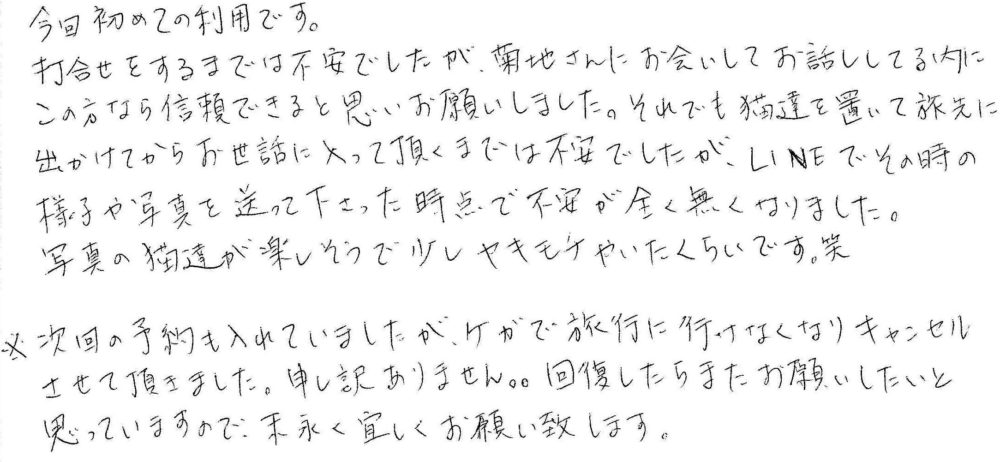 今回初めての利用です。
打合せをするまでは不安でしたが、菊地さんにお会いしてお話ししてる内に
この方なら信頼できると思いお願いしました。それでも猫達を置いて旅先に
出かけてからお世話に入って頂くまでは不安でしたが、LINEでその時の
様子や写真を送って下さった時点で不安が全く無くなりました。
写真の猫達が楽しそうで少しヤキモチやいたくらいです。笑
※次回の予約も入れていましたが、ケガで旅行に行けなくなりキャンセル
させて頂きました。申し訳ありません。。回復したらまたお願いしたいと
思っていますので、末永く宜しくお願い致します。